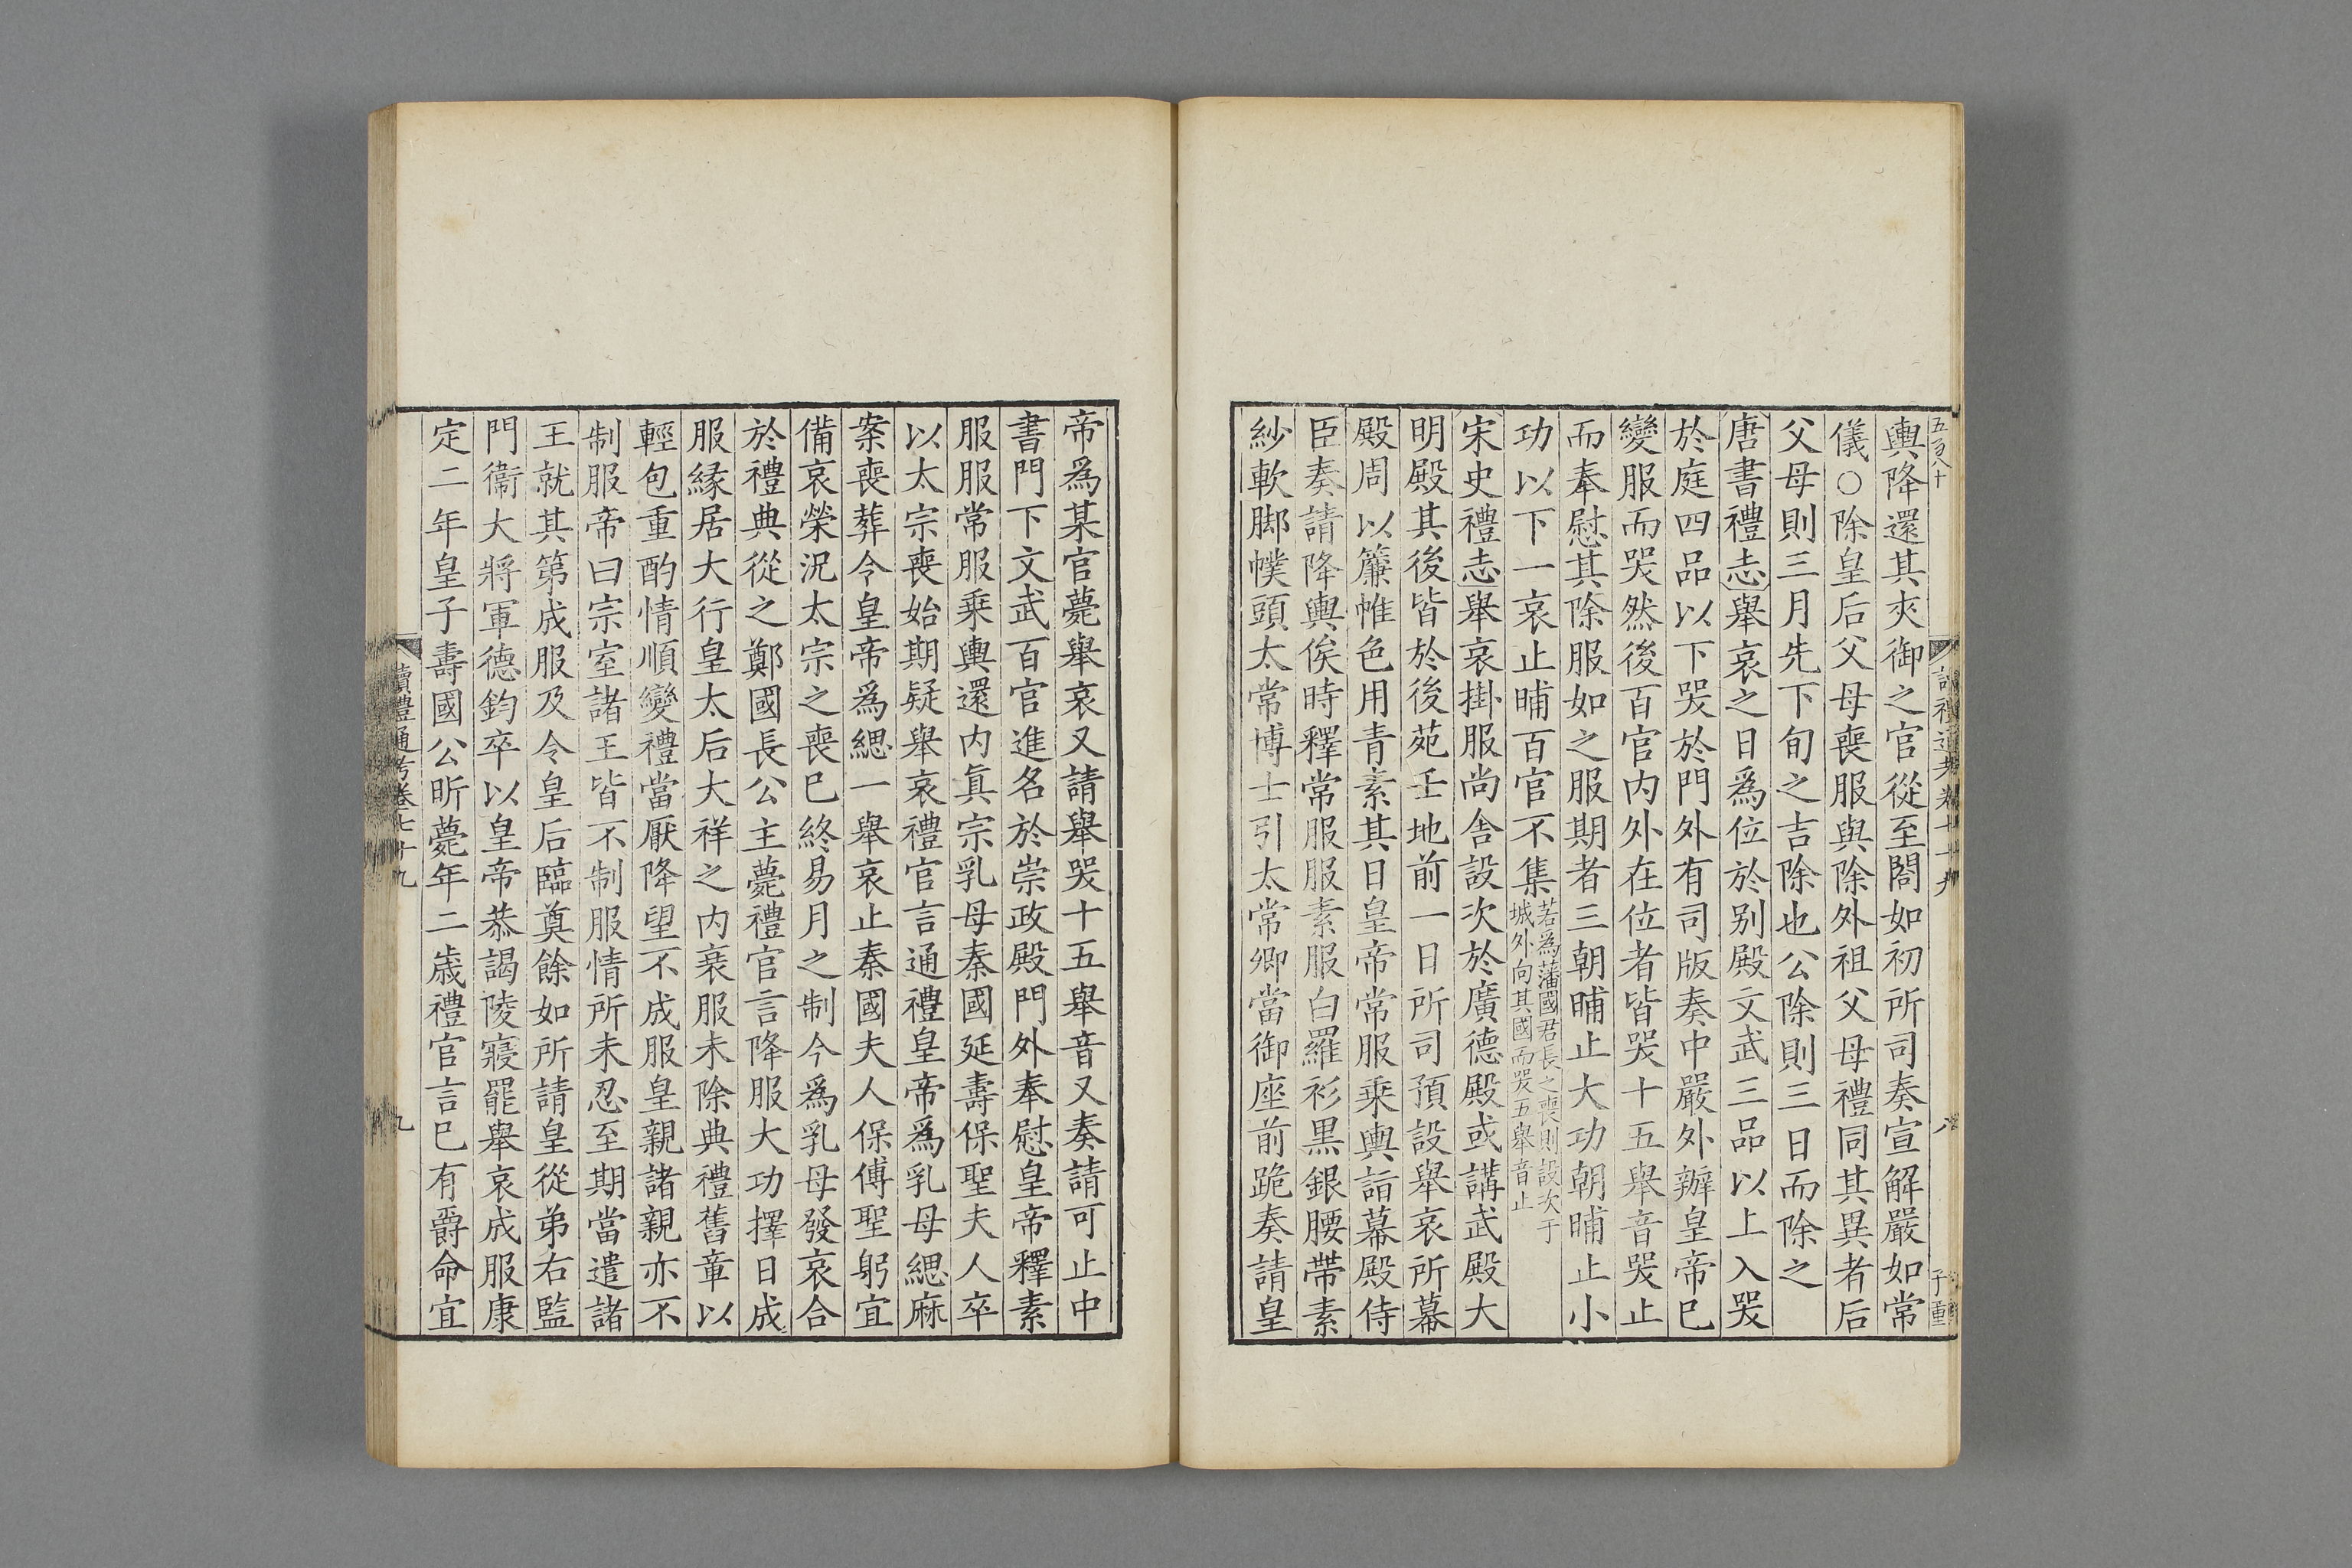 五百八十
輿降還其夾御之官從至閤如初所司奏宣解嚴如常
儀○除皇后父母喪服與除外祖父母禮同其異者后
父母則三月先下旬之吉除也公除則三日而除之
唐書禮志舉哀之日爲位於别殿文武三品以上入哭
於庭四品以下哭於門外有司版奏中嚴外辦皇帝已
變服而哭然後百官内外在位者皆哭十五舉音哭止
而奉慰其除服如之服期者三朝晡止大功朝晡止小
功以下一哀止晡百官不集若爲藩國君長之喪則設次于城外向其國而哭五舉音止
宋史禮志舉哀掛服尚舍設次於廣德殿或講武殿大
明殿其後皆於後苑壬地前一日所司預設舉哀所幕
殿周以簾帷色用青素其日皇帝常服乘輿詣幕殿侍
臣奏請降輿俟時釋常服服素服白羅衫黑銀腰帶素
紗軟脚幞頭太常博士引太常卿當御座前跪奏請皇
八
子重
帝爲某官薨舉哀又請舉哭十五舉音又奏請可止中
書門下文武百官進名於崇政殿門外奉慰皇帝釋素
服服常服乗輿還内眞宗乳母秦國延壽保聖夫人卒
以太宗喪始期疑舉哀禮官言通禮皇帝爲乳母緦麻
案喪葬令皇帝爲緦一舉哀止秦國夫人保傅聖躬宜
備哀榮況太宗之喪已終易月之制今爲乳母發哀合
於禮典從之鄭國長公主薨禮官言降服大功擇日成
服縁居大行皇太后大祥之内衰服未除典禮舊章以
輕包重酌情順變禮當厭降望不成服皇親諸親亦不
制服帝曰宗室諸王皆不制服情所未忍至期當遣諸
王就其第成服及令皇后臨奠餘如所請皇從弟右監
門衞大將軍德鈞卒以皇帝恭謁陵寢罷舉哀成服康
定二年皇子壽國公昕薨年二歲禮官言已有爵命宜
讀禮通考卷七十九
九